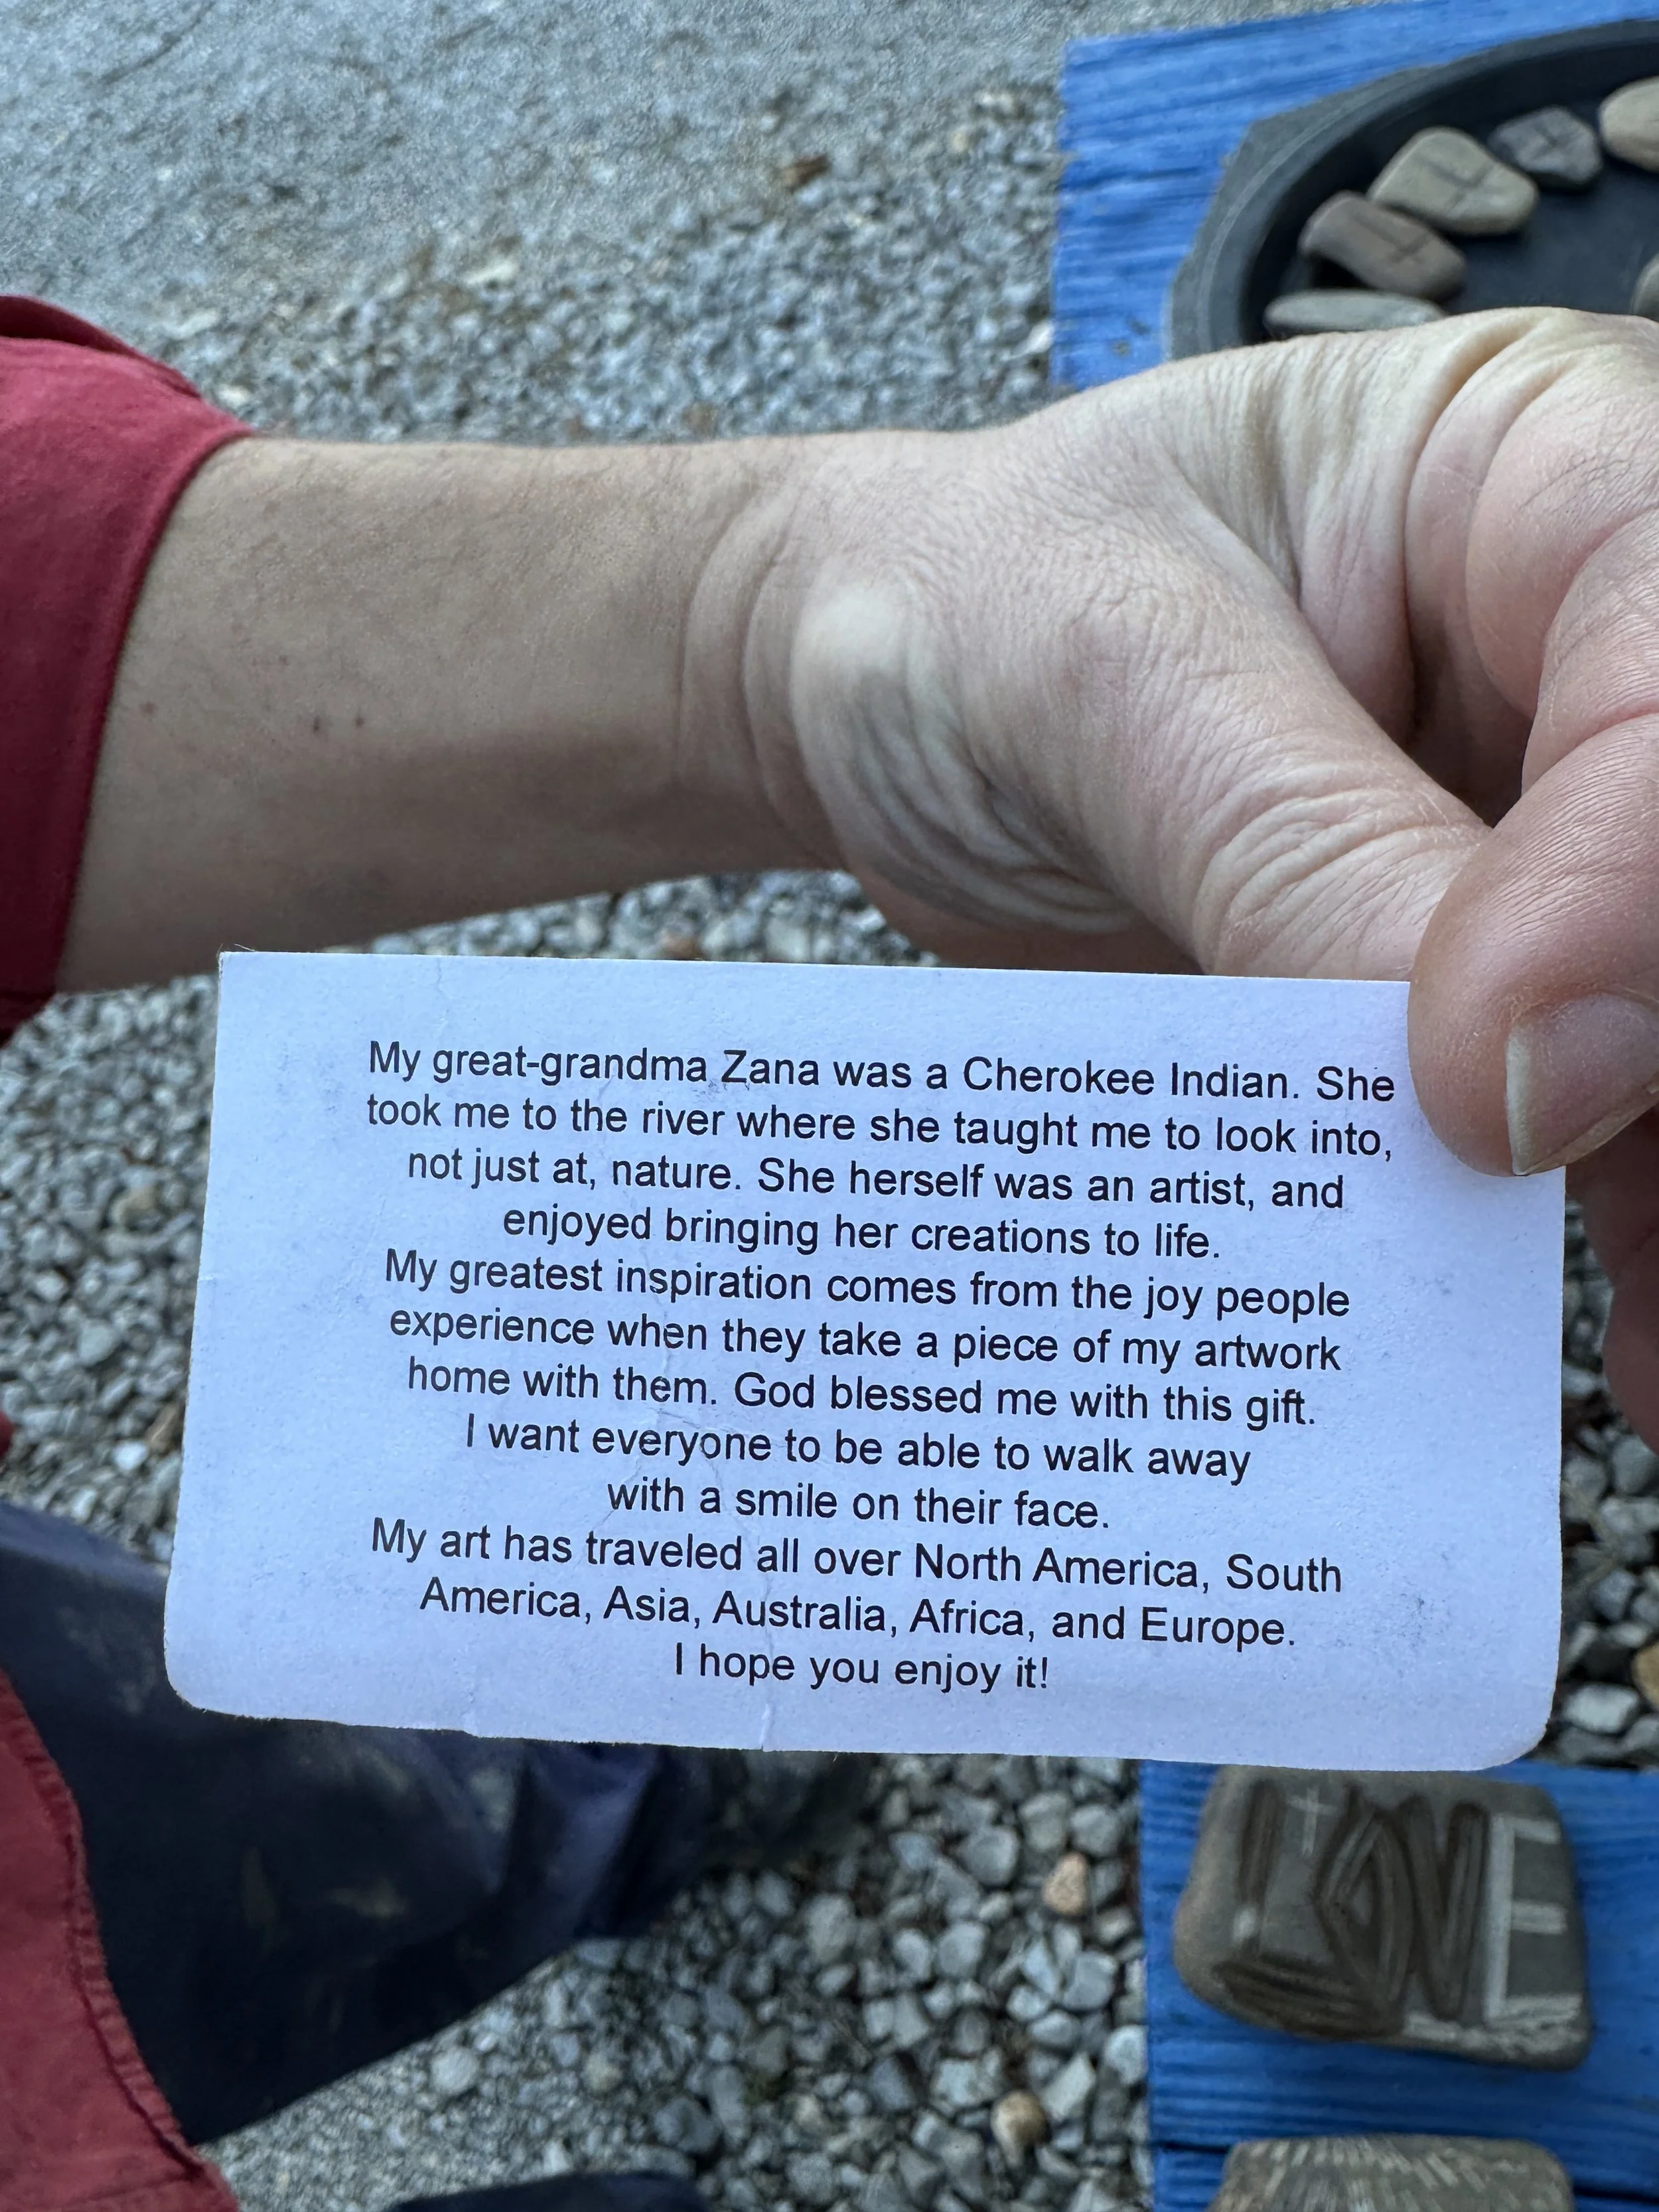 My great-grandma Zana was a Cherokee Indian. She
took me to the river where she taught me to look into,
not just at, nature. She herself was an artist, and
enjoyed bringing her creations to life.
My greatest inspiration comes from the joy people
experience when they take a piece of my artwork
home with them. God blessed me with this gift.
I want everyone to be able to walk away
with a smile on their face.
My art has traveled all over North America, South
America, Asia, Australia, Africa, and Europe.
I hope you enjoy it!
LOVE